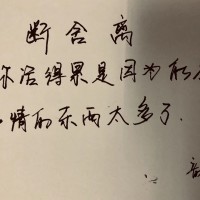 断舍离
你活得累是因为
心情的东西太多了.